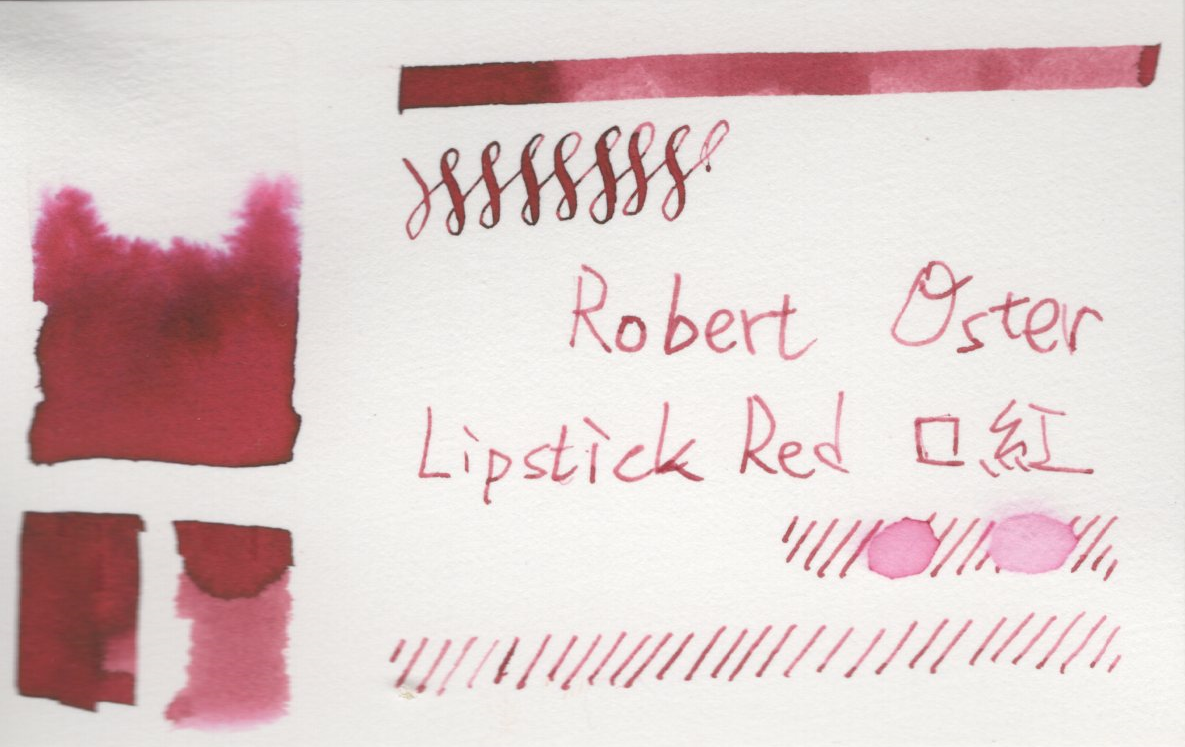 Robert Oster
Lipstick Red 口紅